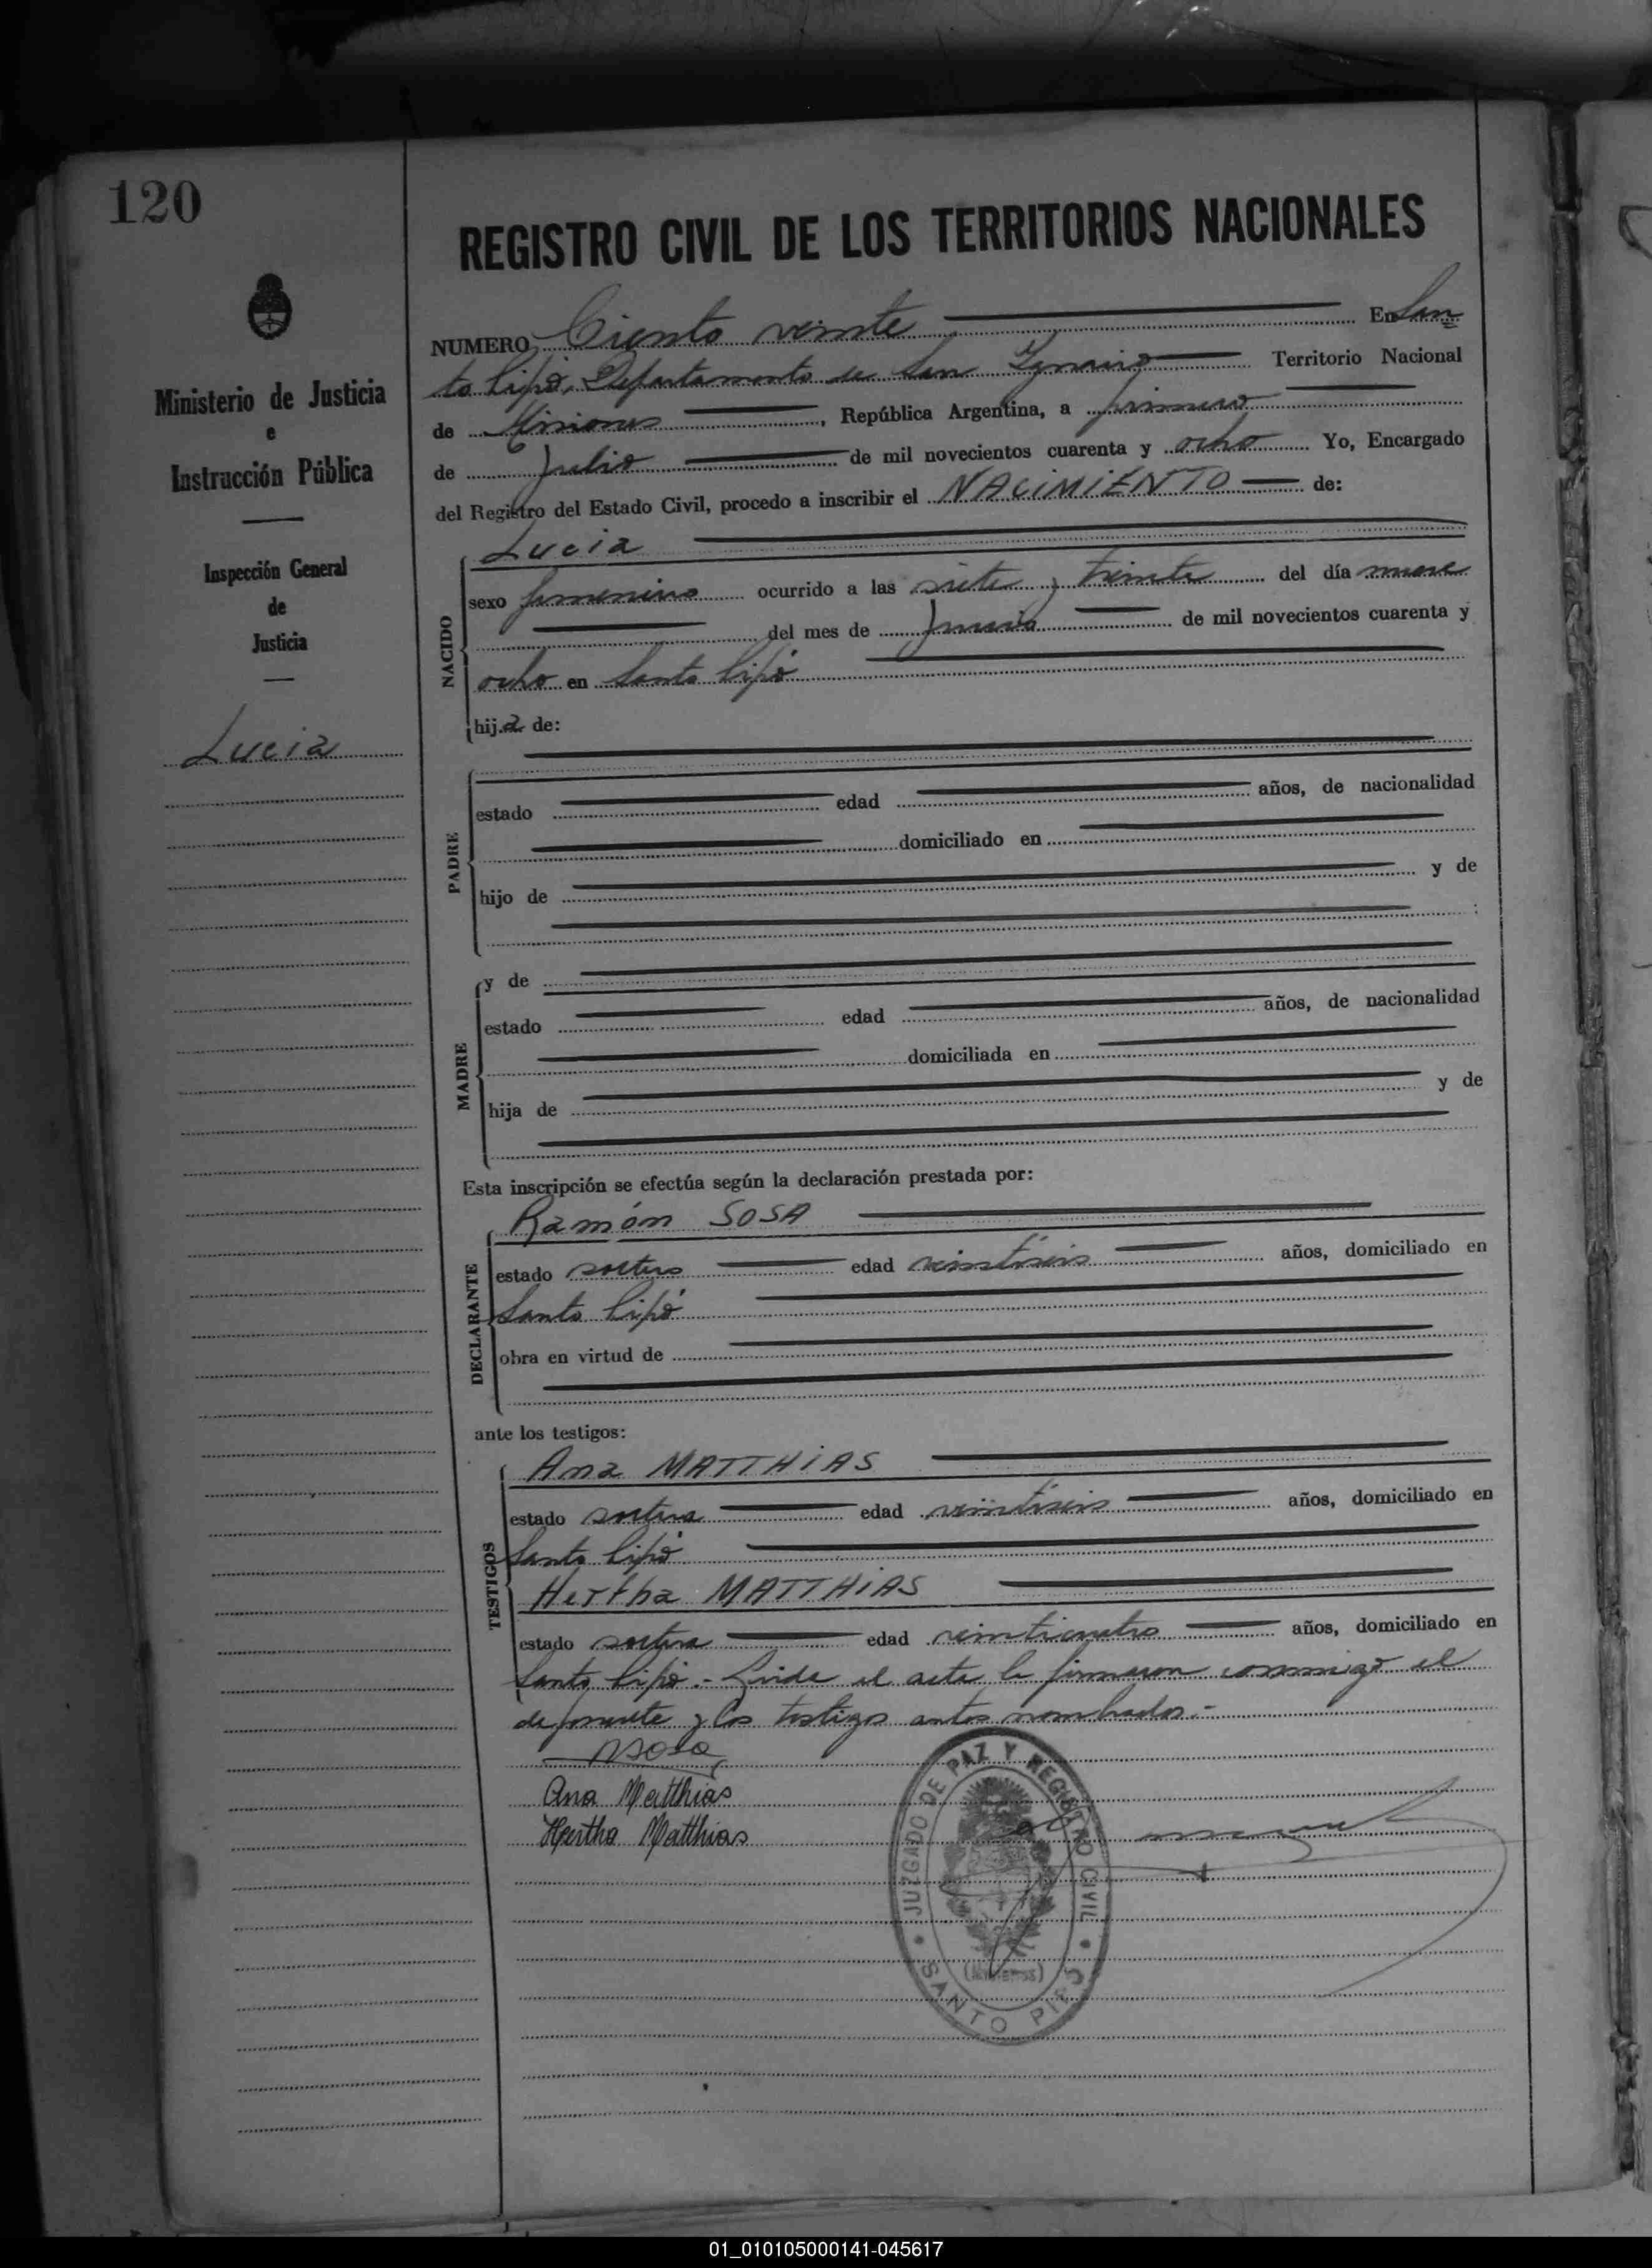 120
REGISTRO CIVIL DE LOS TERRITORIOS NACIONALES
Ministerio de Justicia
e
Instrucción Pública
Inspección General
de
Justicia
Lucia
NUMERO Ciento veinte En San
to Pipó, Departamento de San Ignacio Territorio Nacional
de Misiones, República Argentina, a primero
de Julio de mil novecientos cuarenta y ocho Yo, Encargado
del Registro del Estado Civil, procedo a inscribir el NACIMIENTO de:
NACIDO
Lucia
sexo femenino ocurrido a las siete y treinta del día nueve
del mes de Junio de mil novecientos cuarenta y
ocho en Santo Pipó
hija de:
PADRE
estado edad años, de nacionalidad
domiciliado en
hijo de y de
;
MADRE
y de
estado edad años, de nacionalidad
domiciliada en
hija de y de
Esta inscripción se efectúa según la declaración prestada por:
DECLARANTE
Ramón SOSA
estado soltero edad veintiseis años, domiciliado en
Santo Pipó
obra en virtud de
ante los testigos:
TESTIGOS
Ana MATTHIAS
estado soltera edad veintiseis años, domiciliado en
Santo Pipó
Hertha MATTHIAS
estado soltera edad veinticuatro años, domiciliado en
Santo Pipó.- Leida el acta la firmaron conmigo el
deponente y los testigos antes nombrados.-
RSosa
Ana Matthias
Hertha Matthias
JUZGADO DE PAZ Y REGISTRO CIVIL
SANTO PIPÓ
01_010105000141-045617